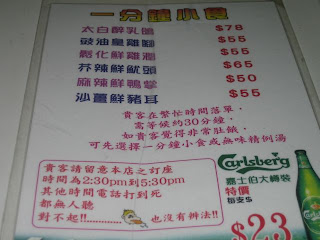 一分鐘小食
太白醉乳鴿 $78
豉油皇雞腳 $55
彰化鮮雞潤 $55
芥辣鮮魷頭 $65
麻辣鮮鴨掌 $50
沙薑鮮豬耳 $55
貴客在繁忙時間落單,
需等候約30分鐘,
如貴客覺得非常肚餓,
可先選擇一分鐘小食或無味精例湯
貴客請留意本店之訂座
時間為2:30pm到5:30pm
其他時間電話打到死
都無人聽
對不起!!.............. 也沒有辦法!!
Carlsberg
嘉士伯大樽裝
特價
每支5
$23
Carlsberg